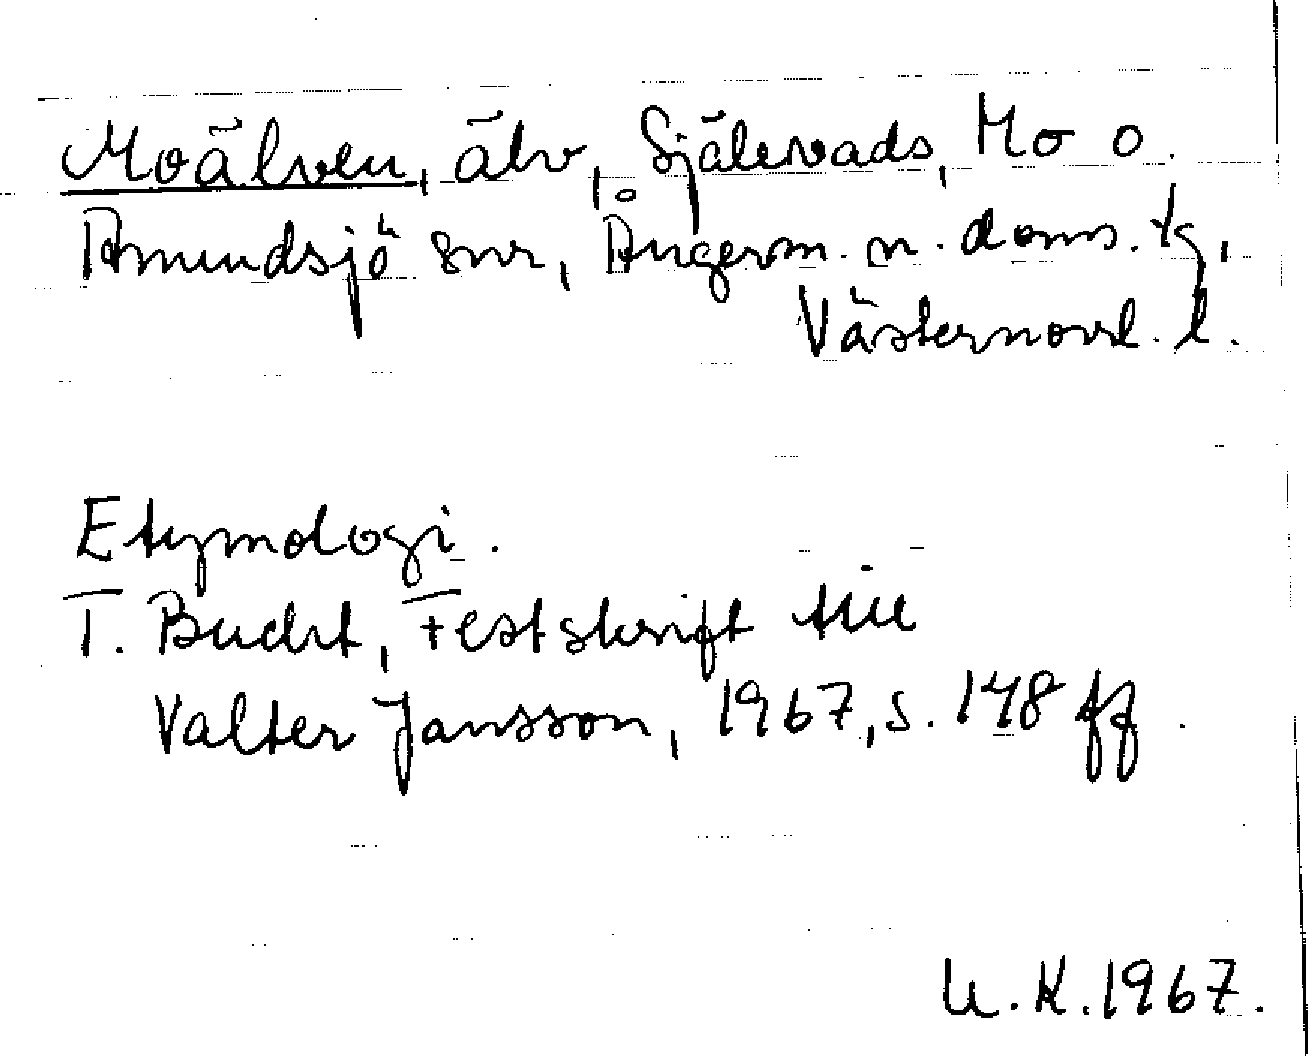 Moälven, älv, Själevads, Mo o.
Anundsjö snr, Ångerm. n. doms. tg,
Västernorrl. l.
Etymologi.
T. Bucht, Festskrift till
Valter Jansson, 1967, s. 148 ff.
U.K. 1967.